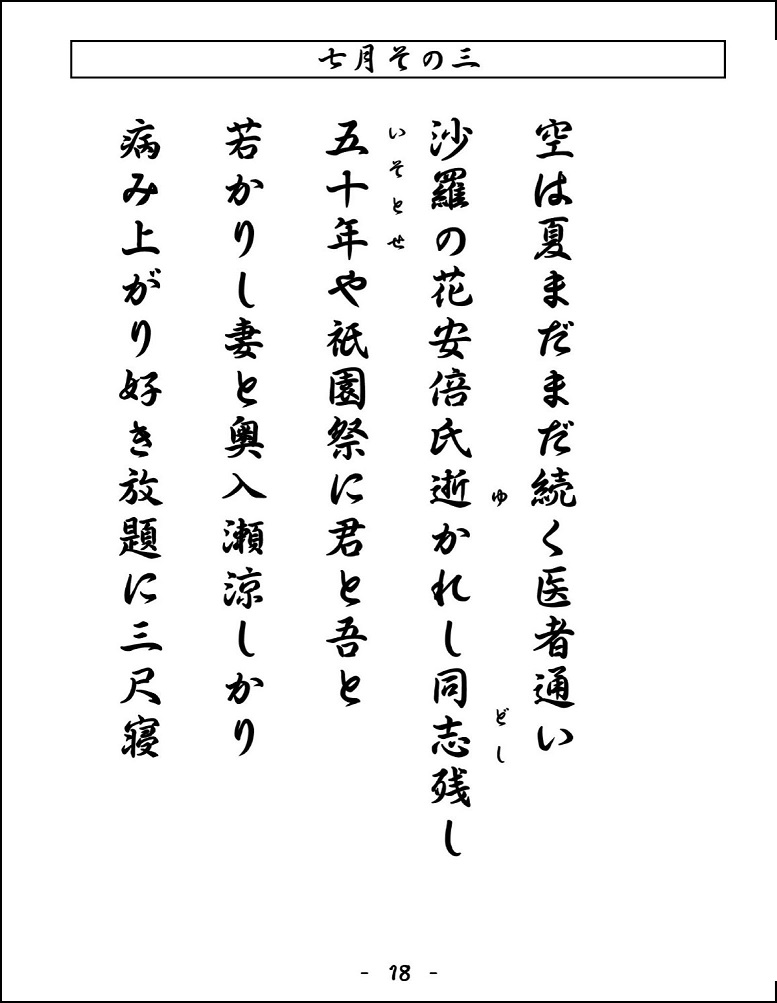 七月その三
空は夏まだまだ続く医者通い
沙羅の花安倍氏逝かれし同志残し
ゆ
どし
五十年や祇園祭に君と吾と
いそとせ
若かりし妻と奥入瀬涼しかり
病み上がり好き放題に三尺寝
- 18 -